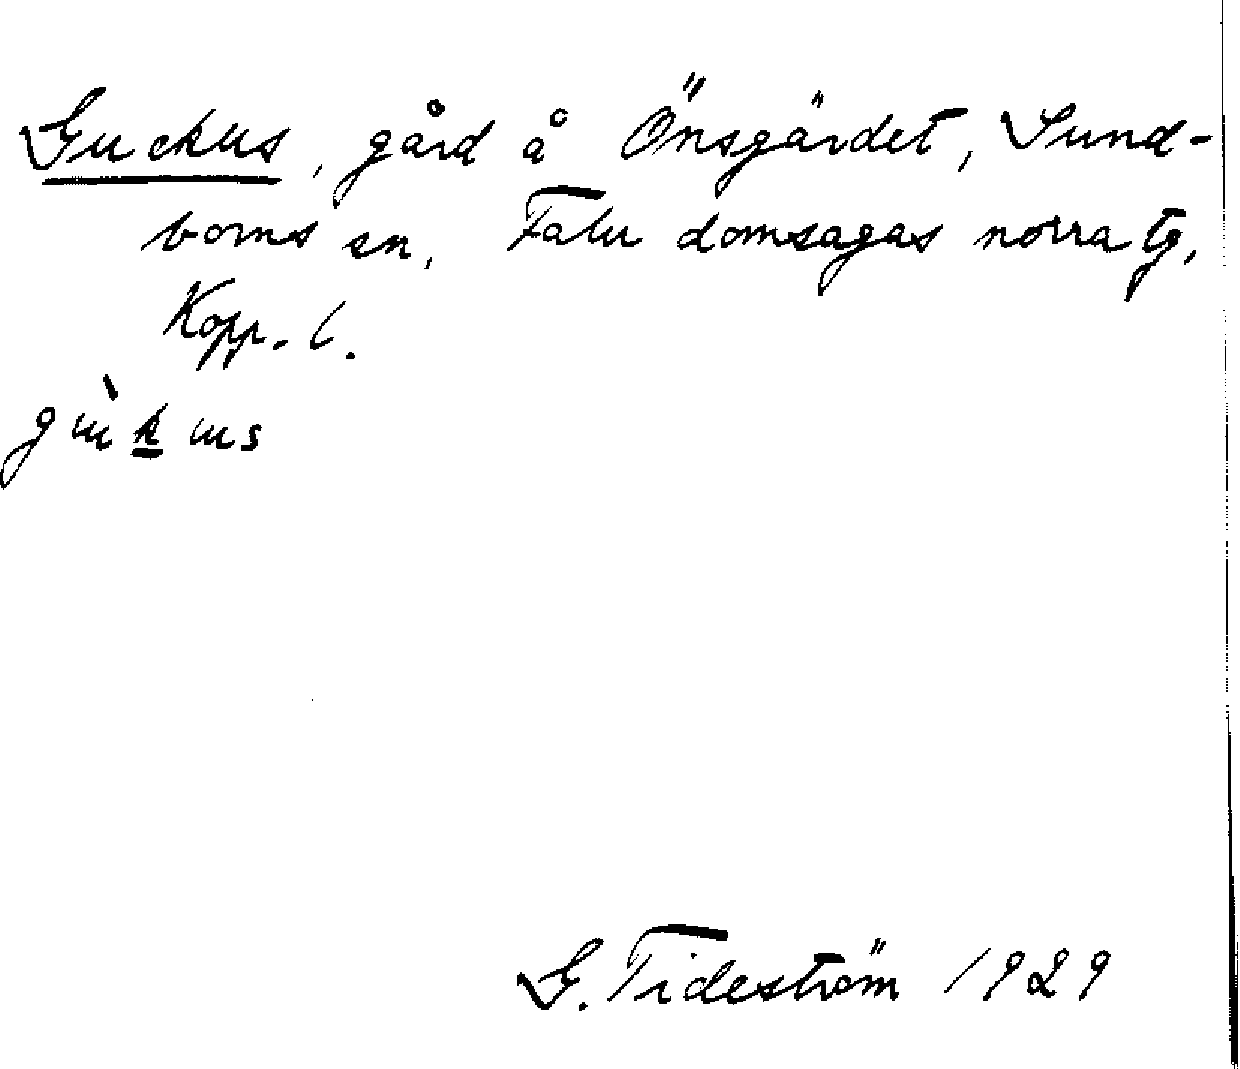 Guckus, gård å Önsgärdet, Sund-
borns sn, Falu domsagas norra tg,
Kopp. l.
gu̇̀k̲us
G. Tideström 1929